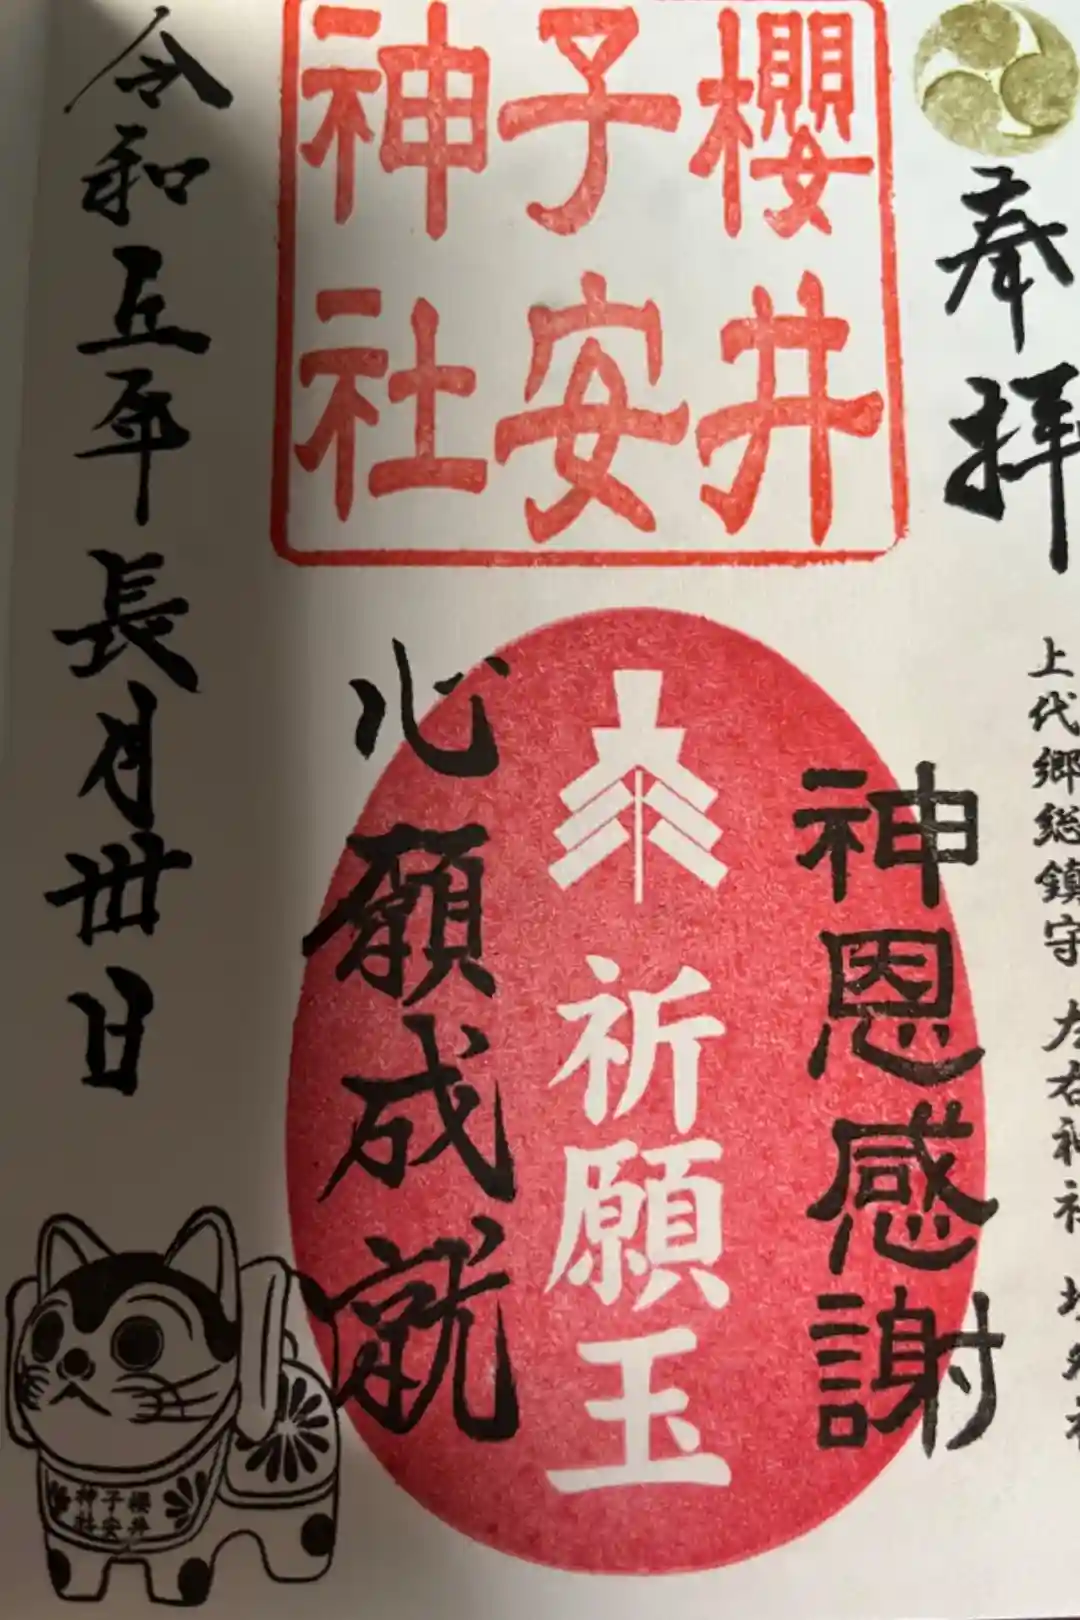 奉拝
上代郷総鎮守 左右神社
櫻井
子安
神社
神恩感謝
祈願玉
心願成就
令和五年長月卅日
櫻井
子安
神社